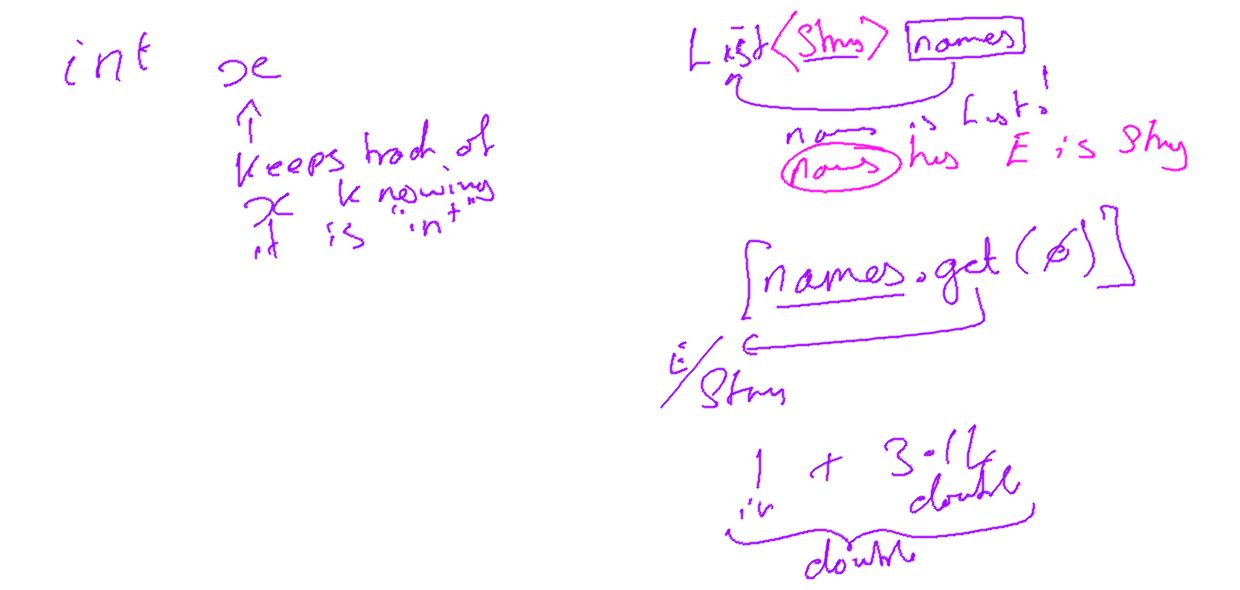 int x
keeps track of
x knowing
it is "int"
List<String> names
names is List!
names has E is String
[names.get(0)]
E/String
1 + 3.14
int double
double